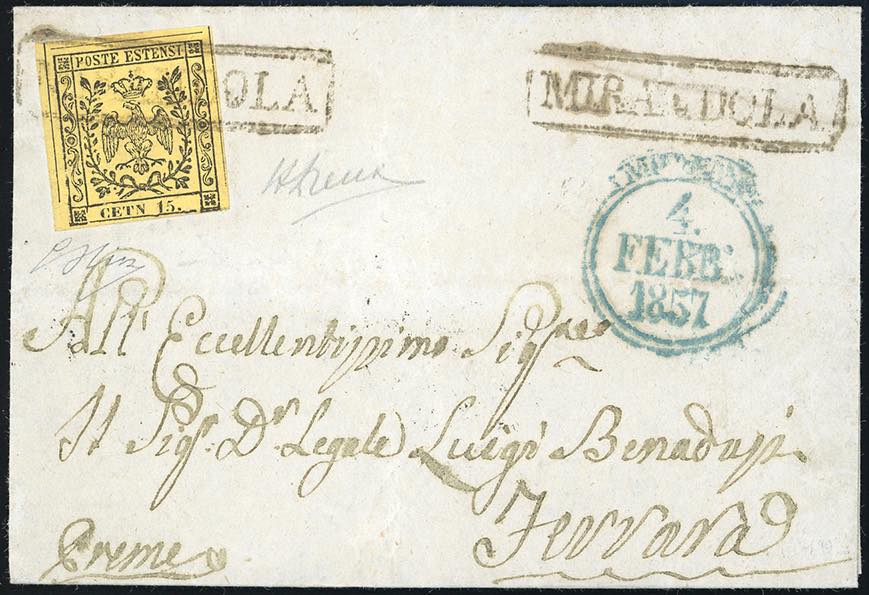 POSTE ESTENSI
CETN 15.
OLA
MIRANDOLA
4.
FEBB.
1857
All' Eccellentissimo Sigre
Il Sigr. Dr. Legale Luigi
Ferrara
Preme